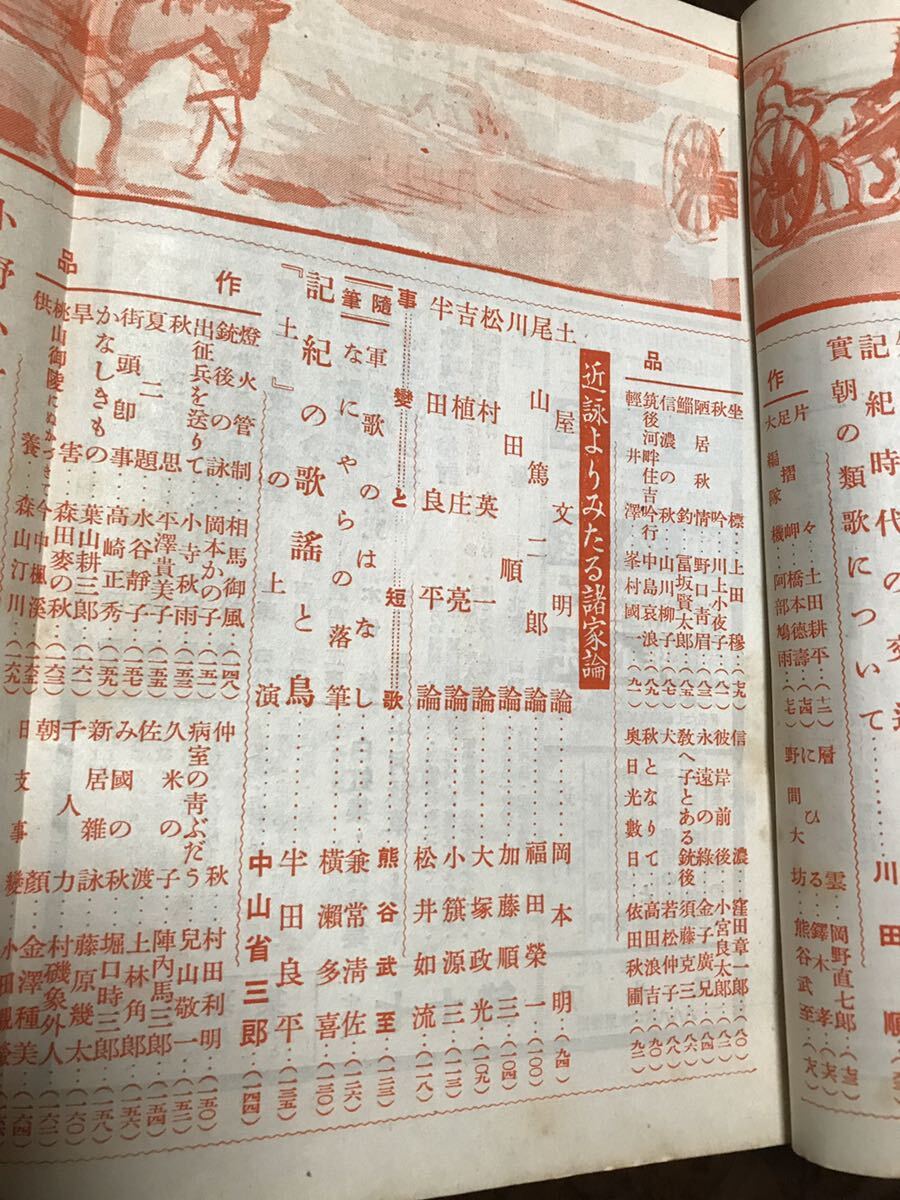 記紀時代の
實朝の類歌について
川田順
作
片々
土田耕平
(一二)
層雲
岡野直七郎
摺岬
橋本德壽
(七四)
にひる
鐸木孝
足機
阿部鳩雨
(七七)
野間大坊
熊谷武至
大編隊
品
坐標
上田穆
(七九)
信濃
窪田章一郎
(八〇)
秋吟
川上小夜子
(八一)
彼岸前後
小宮良太郎
(八二)
陋居秋情
野口靑眉
(八三)
永遠の綠
金子廣兄
(八四)
鯔釣
冨坂賢太郎
(八五)
敎へ子とある銃後
須藤克三
(八六)
信濃の秋
山川柳子
(八七)
犬
若松仲子
(八八)
筑後河畔住吉吟行
中島哀浪
(八九)
秋となりて
高田浪吉
(九〇)
輕井澤
峯村國一
(九一)
奥日光數日
依田秋圃
(九二)
近詠よりみたる諸家論
土屋文明論
岡本明
(九四)
尾山篤二郎論
福田榮一
(一〇〇)
川田順論
加藤順三
(一〇四)
松村英一論
大塚政光
(一〇九)
吉植庄亮論
小籏源三
(一一三)
半田良平論
松井如流
(一一八)
事變と短歌
熊谷武至
(一二三)
隨筆
軍歌のはなし
兼常淸佐
(一二六)
なにやらの落筆
橫瀨多喜
(一三〇)
記紀の歌謠と鳥
半田良平
(一三五)
『土』の上演
中山省三郎
(一四四)
作
燈火管制
相馬御風
(一四八)
仲秋
村田利明
(一五〇)
銃後の詠
岡本かの子
(一五一)
病室の靑ぶだう
兒山敬一
(一五二)
出征兵を送りて
小寺秋雨
(一五三)
久米の子
陣內馬三郎
(一五四)
秋思
平澤貴美子
(一五五)
佐渡
上林角郎
(一五六)
夏二題
水谷靜子
(一五七)
み國の秋
堀口時三郎
(一五八)
街頭卽事
高崎正秀
(一五九)
新居雜詠
藤原幾太
かなしきもの
葉山耕三郎
(一六一)
千人力
村磯象外人
(一六二)
早害
森田麥の秋
(一六三)
朝顏
金澤種美
(一六四)
桃山御陵にぬかづき
今中楓溪
日支事變
品
供養
森山汀川
(一六九)
小野